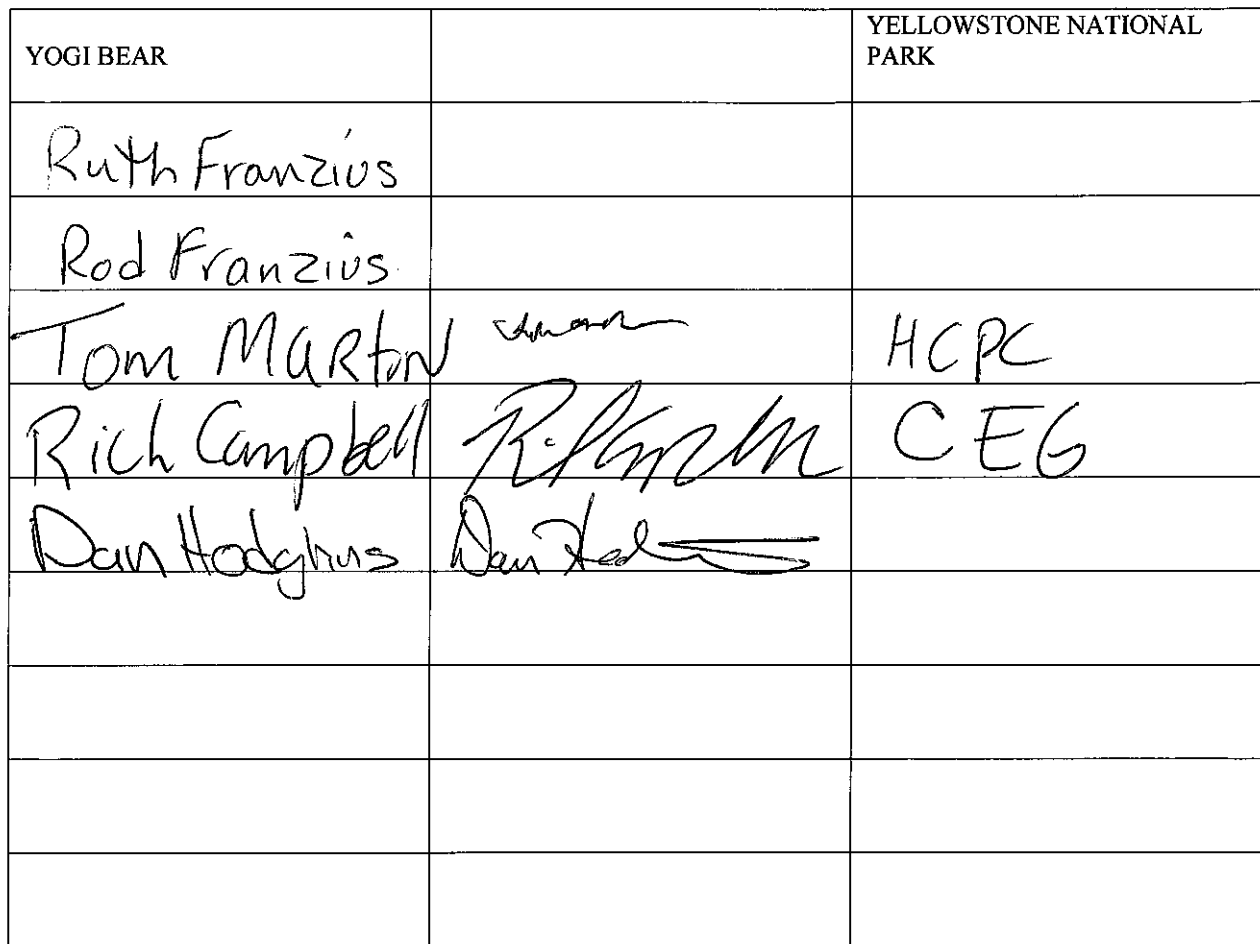 YOGI BEAR
YELLOWSTONE NATIONAL
PARK
Ruth Franzius
Rod Franzius
Tom MARTIN HCPC
Rich Campbell CEG
Dan Hodghins Dan